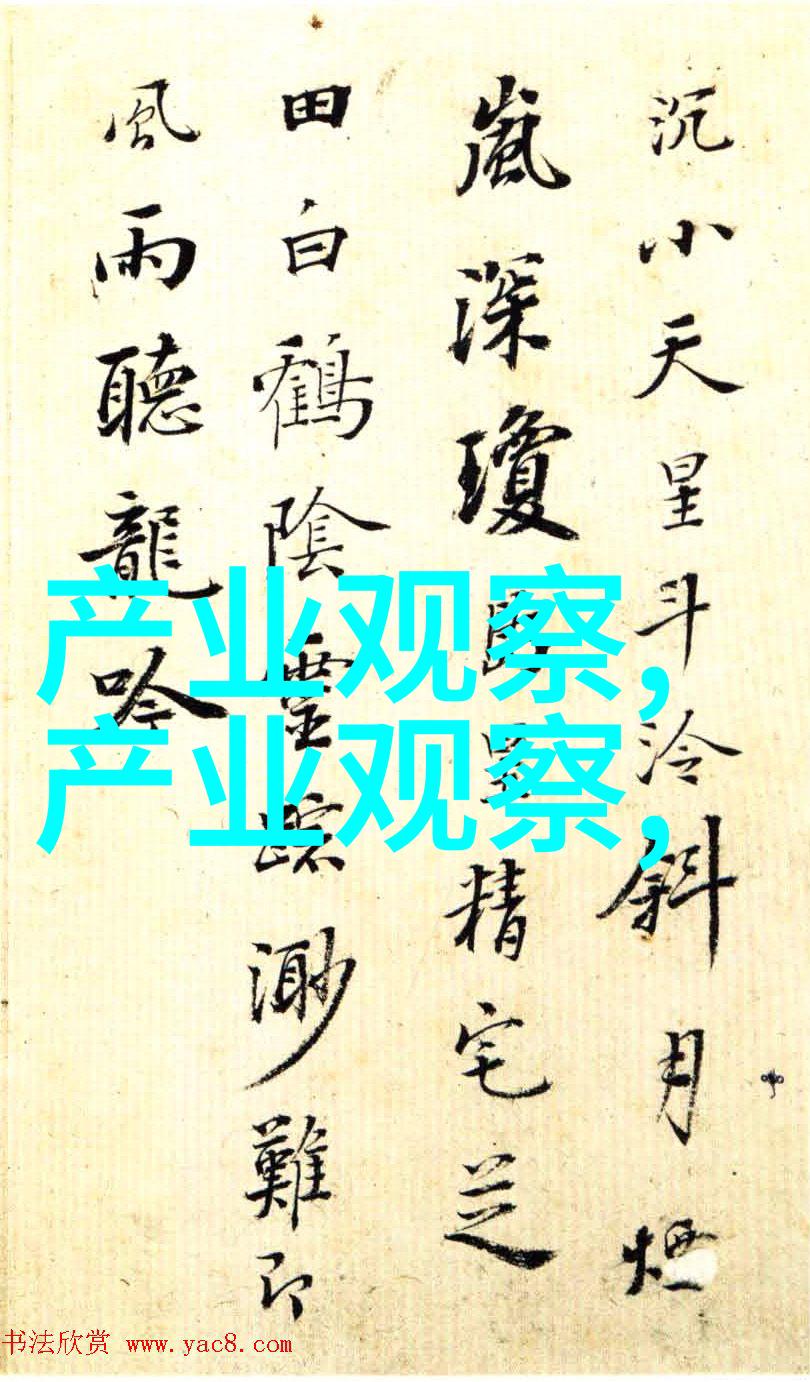 沉小天星斗泠斜月煙
嵐深瓊精宅芝
田白鶴陰靈踪渺難即
風雨聽龍吟
产业观察,
产业观察,
书法欣赏 www.yac8.com